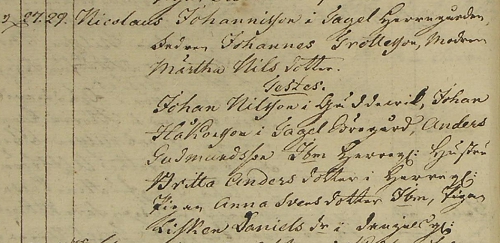 27. 29. Nicolaus Johannisson i Sagel Herregården,
Fadren Johannes Trottesson, Modren
Märtha Nils dotter.
Testes.
Johan Nilsson i Guddewik, Johan
Håkonson i Sagel Öregård, Anders
Gudmundsson Ibm Herreg: Hustru
Britta Anders dotter i Herreg:
Pigan Anna Svensdotter Ibm, Pigan
Lisken Daniels dr i